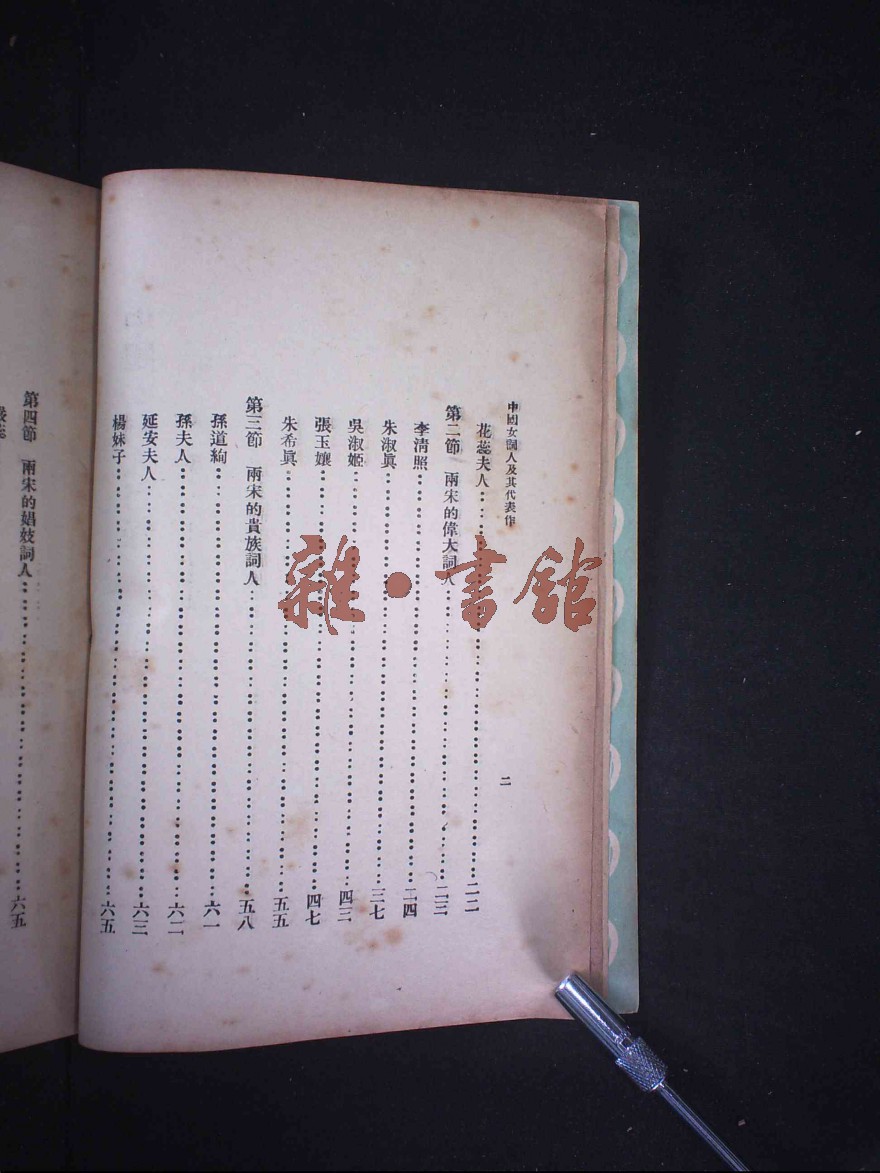 中國女詞人及其代表作
二
花蕊夫人……二二
第二節　兩宋的偉大詞人……二三
李清照……二四
朱淑眞……三七
吳淑姬……四三
張玉孃……四七
朱希眞……五五
第三節　兩宋的貴族詞人……五八
孫道絢……六一
孫夫人……六二
延安夫人……六三
楊妹子……六五
第四節　兩宋的娼妓詞人……六五
雜·書館